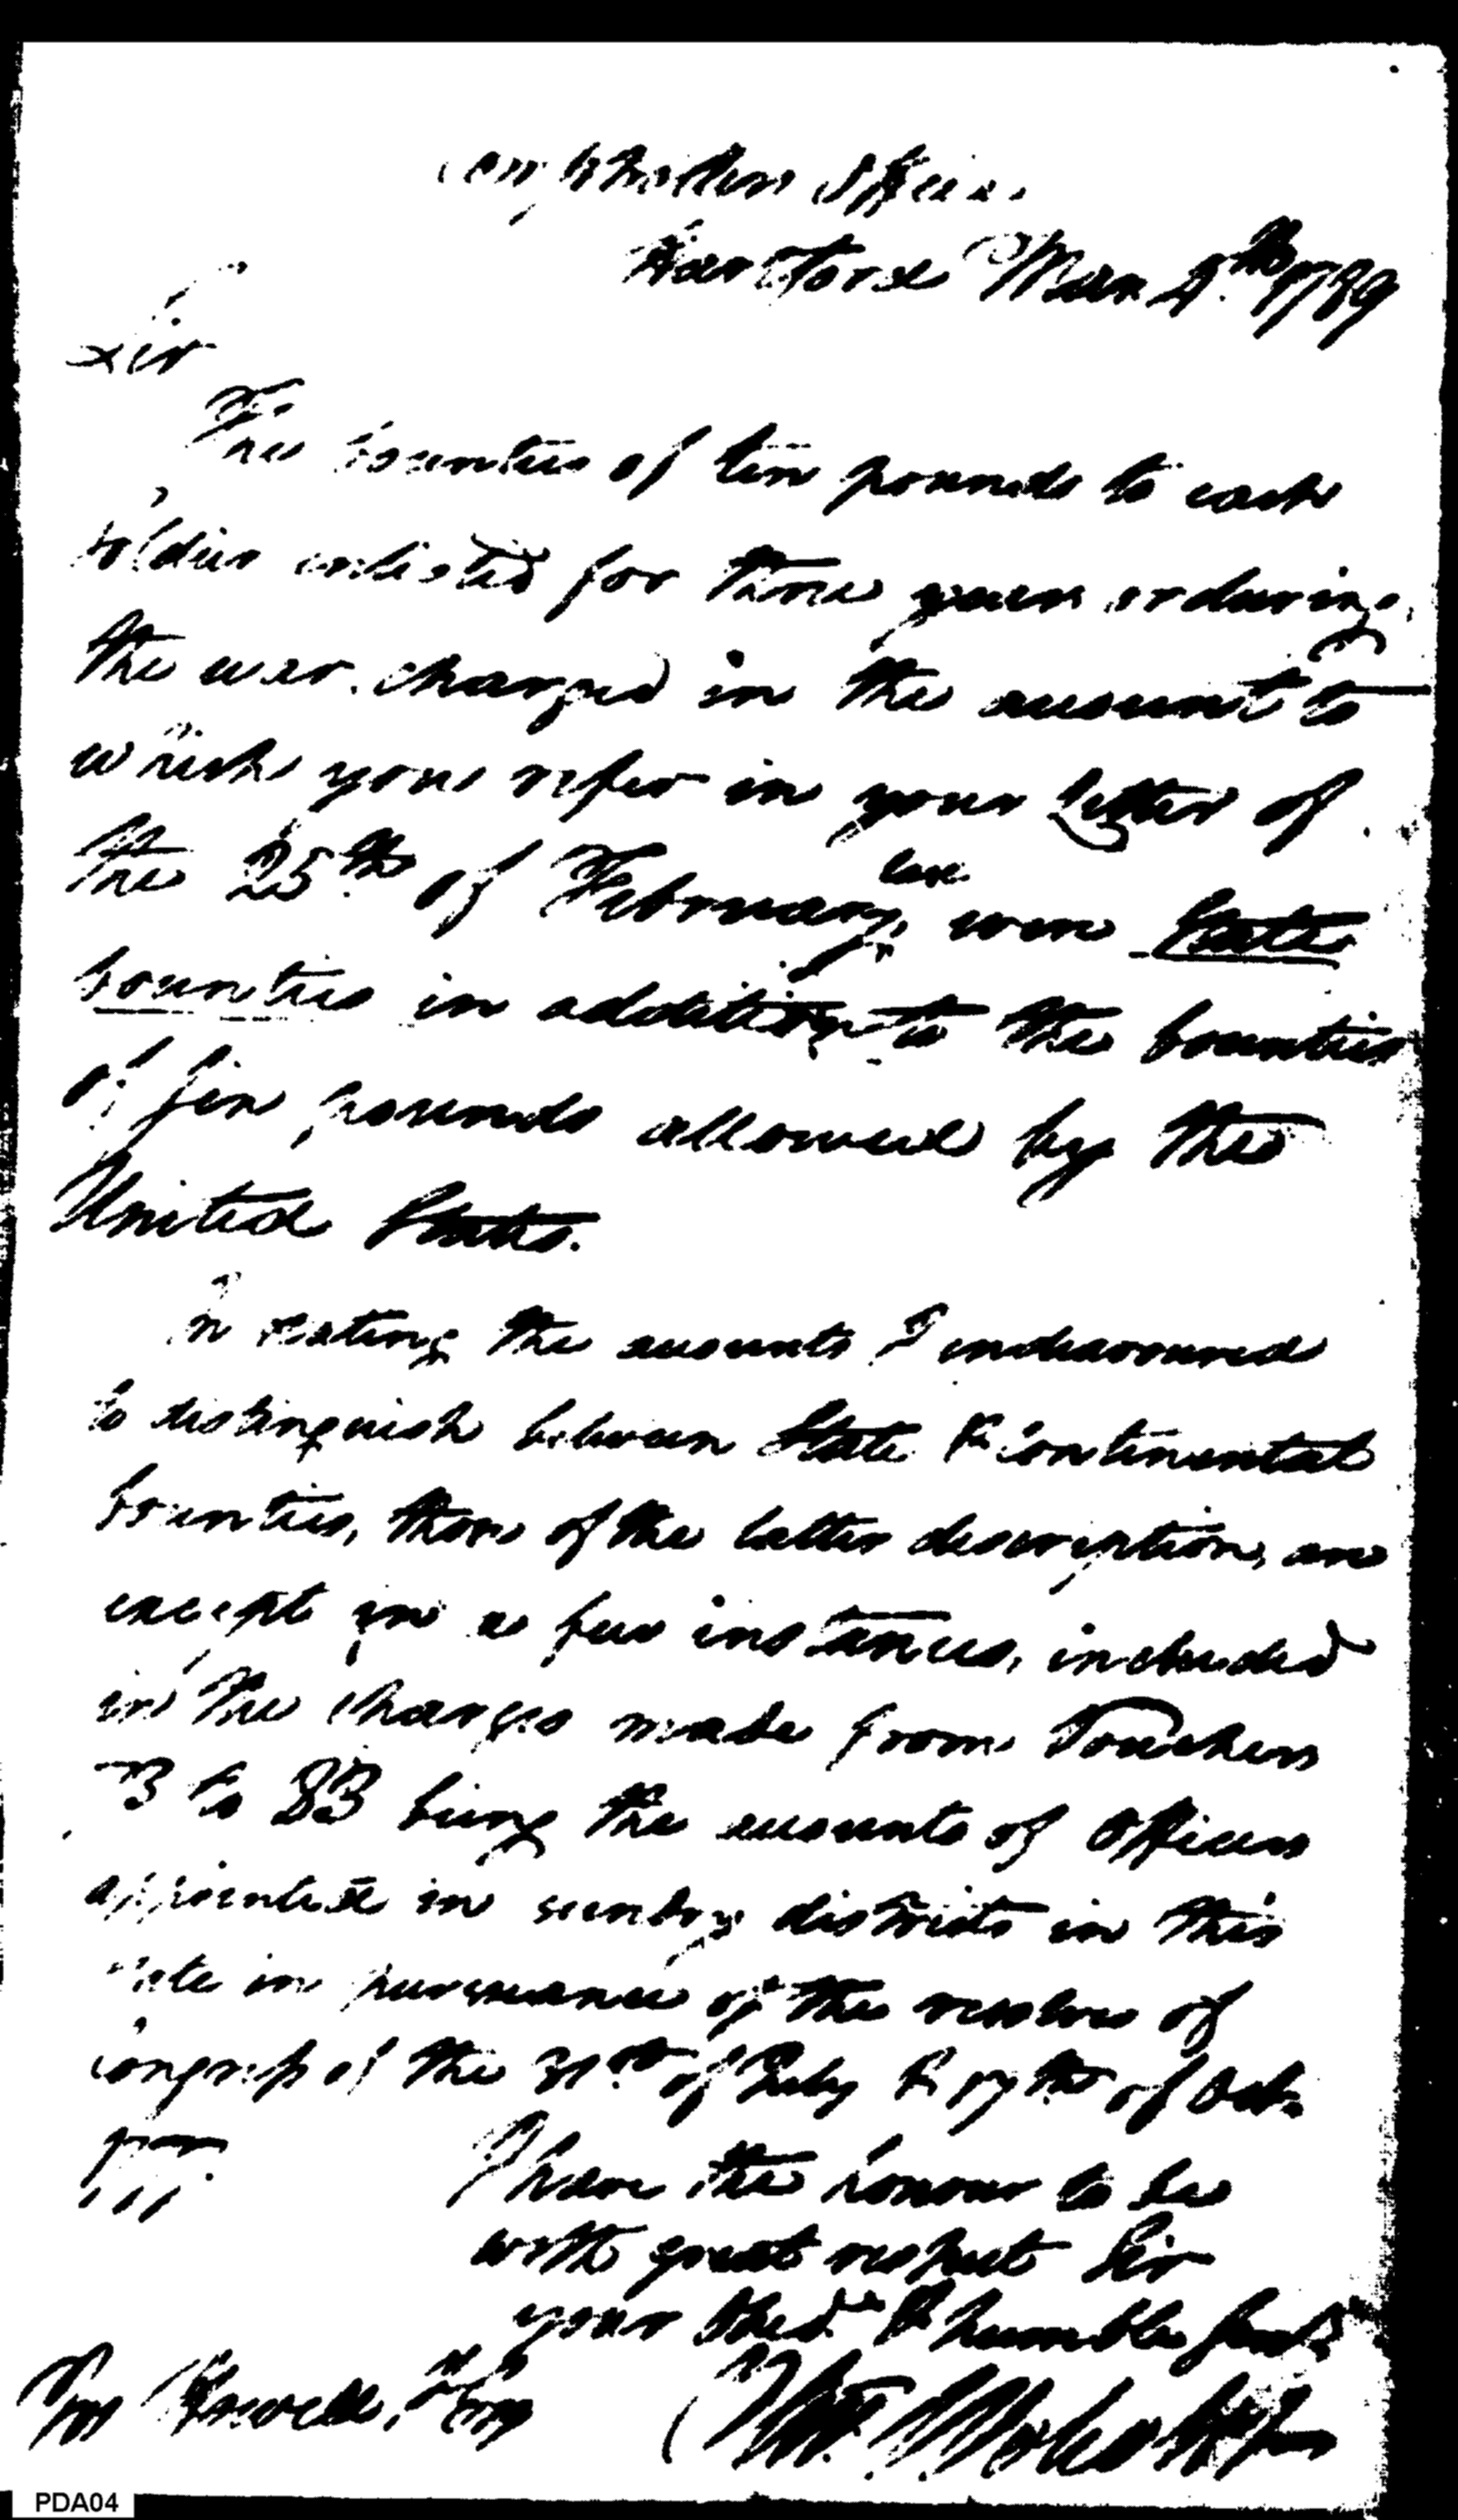 Comptrollers Office
Hartford March 9th 1789
Sir
The bounties of ten pounds to each
soldier enlisted for three years or during
the war. charged in the account to
which you refer in your letter of
the 25th of February last were State
bounties in addition to the bounties
of six pounds allowed by the
United States.
In stating the accounts I endeavoured
to distinguish between State & Continental
bounties, those of the latter description, are
except in a few instances, included
in the charges made from Vouchers
73 to 83 being the accounts of Officers
appointed in sundry districts in this
State in pursuance of the resolve of
Congress of the 31st of July & 17th of Oct.
1777.
I have the honour to be
with great respect Sir
your Obed. & humble Servt
Howell, Esq